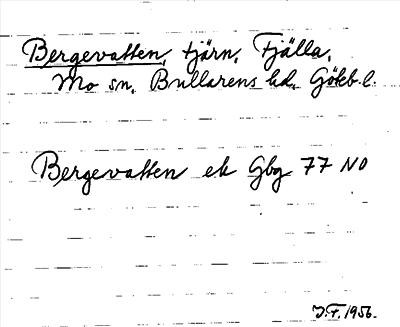 Bergevatten, tjärn, Fjälla,
Mo sn, Bullarens hd, Göteb. l.
Bergevatten ek Gbg 77 NO
J.F. 1956.